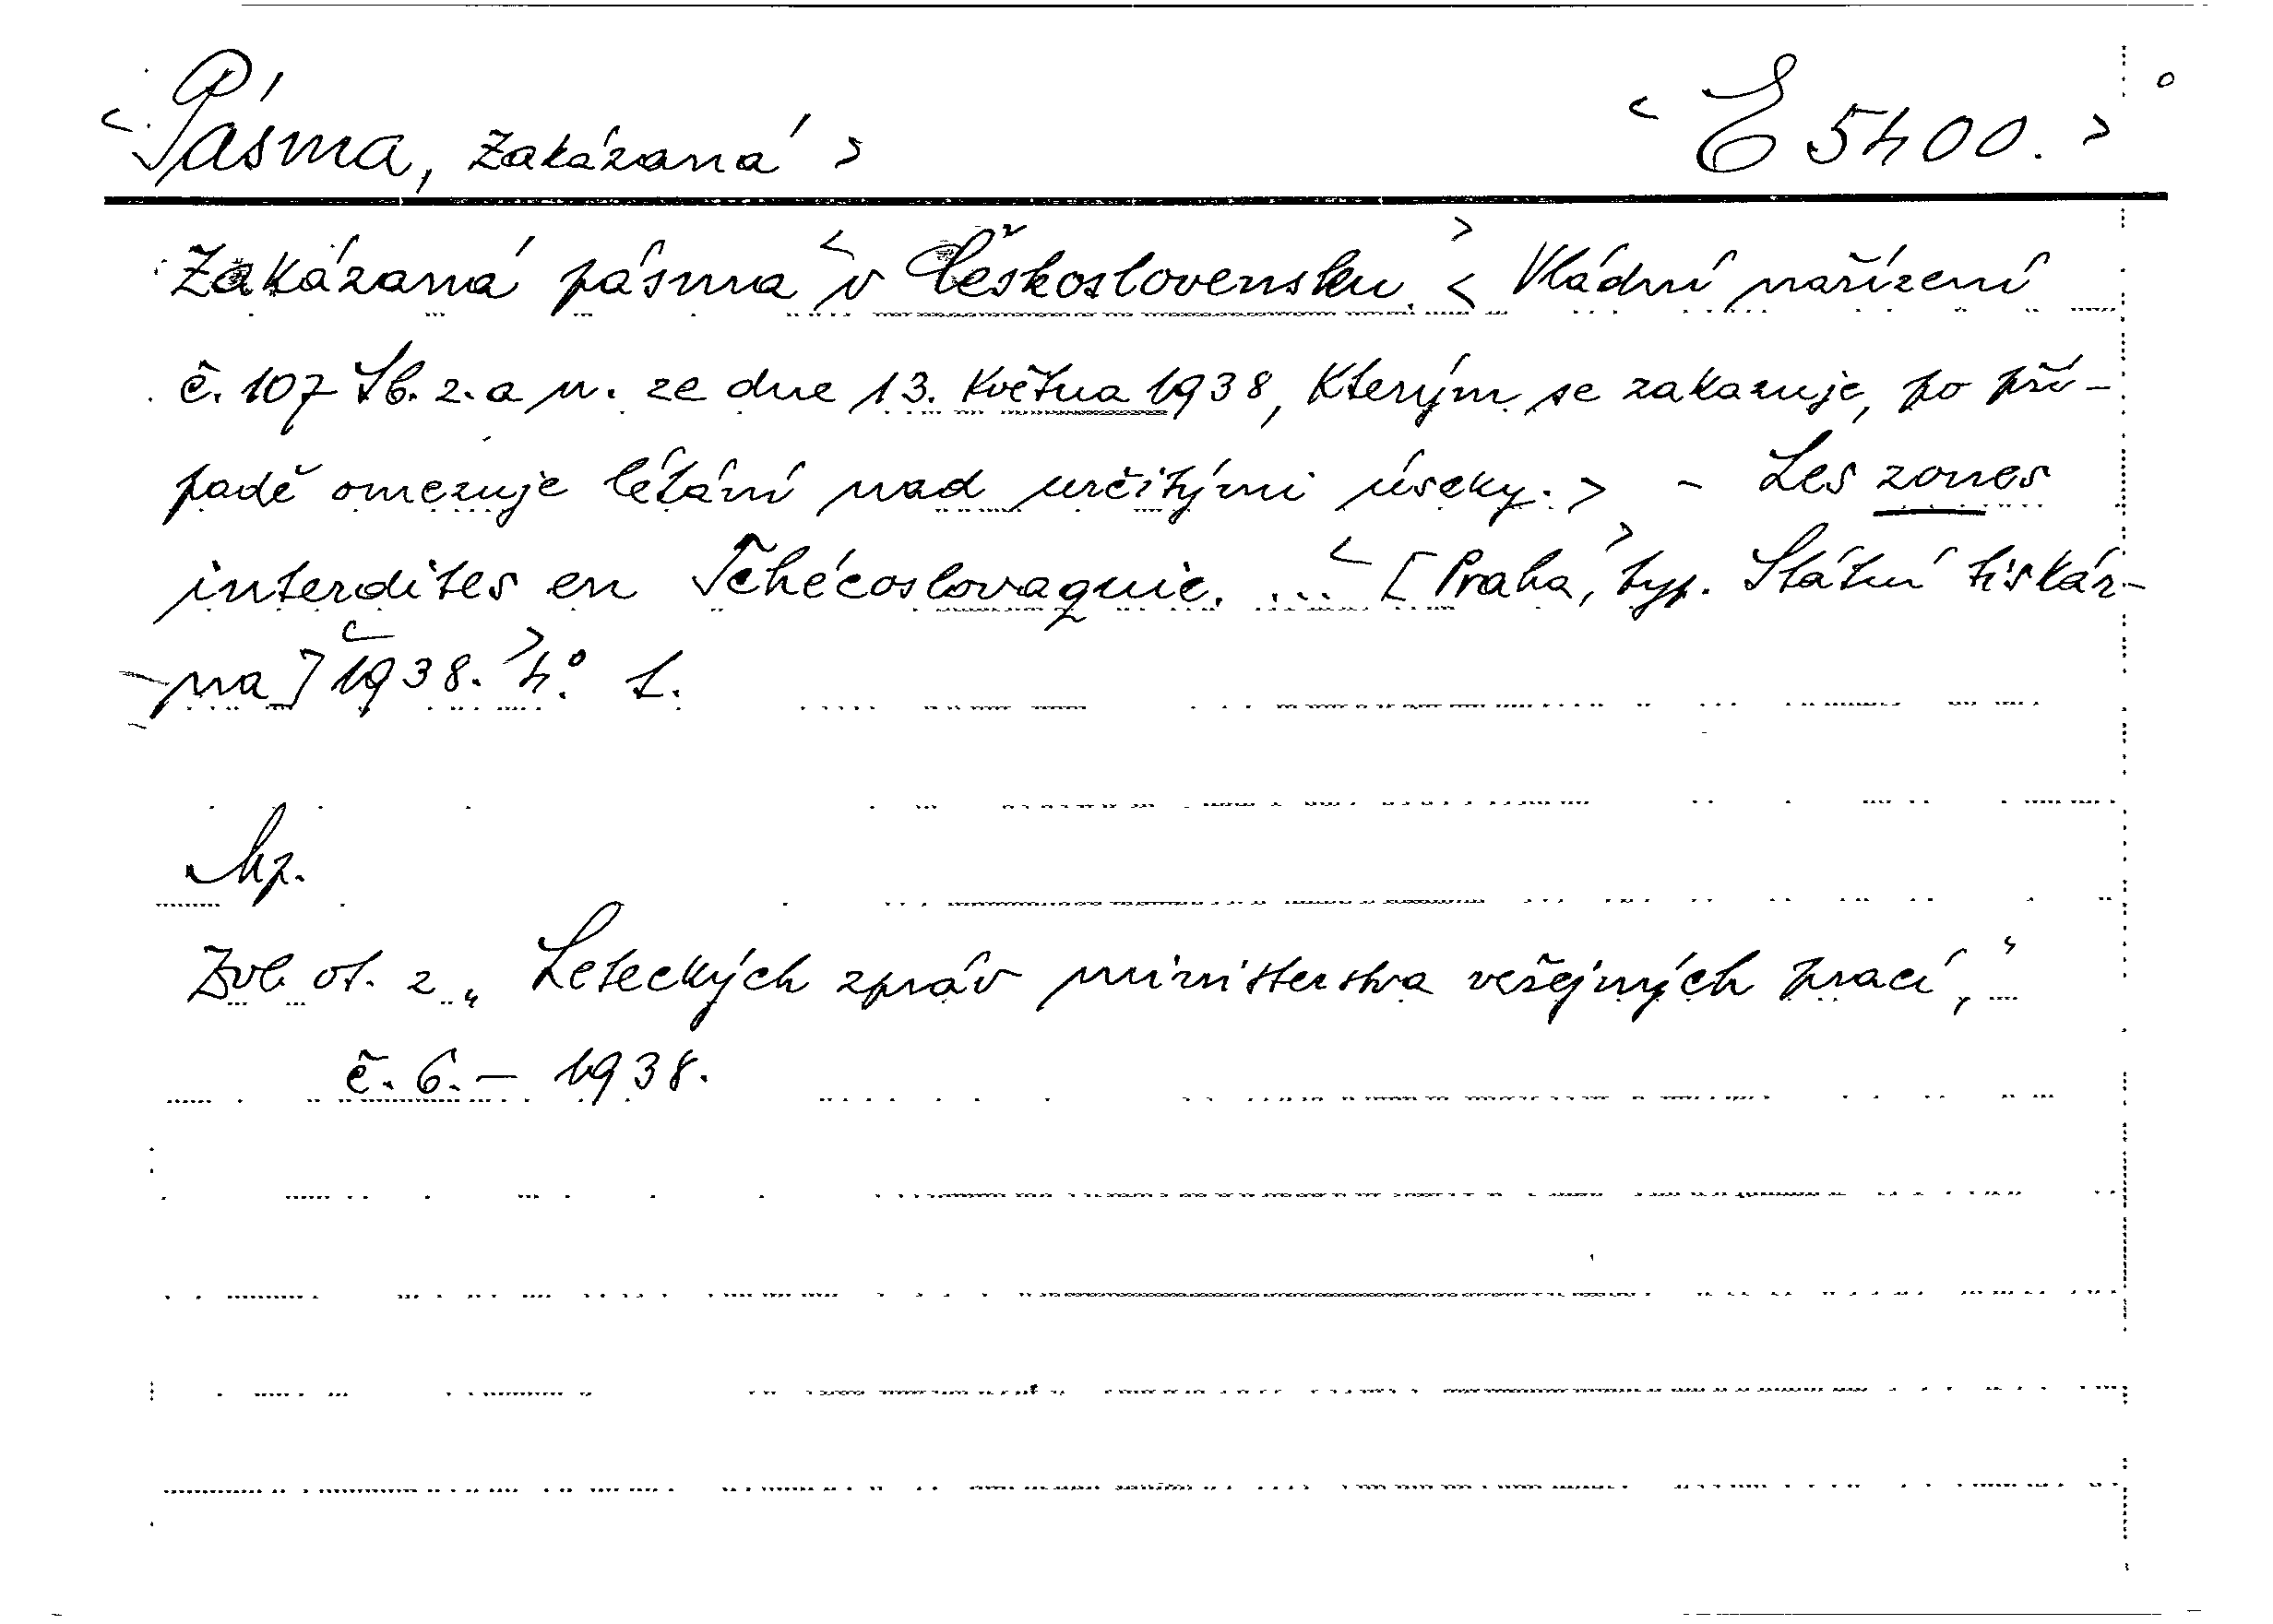 <Pásma, zakázaná> <E 5400.>
Zakázaná pásma <v Československu.> <Vládní nařízení
č. 107 Sb. z. a n. ze dne 13. května 1938, kterým se zakazuje, po pří-
padě omezuje létání nad určitými úseky.> - Les zones
interdites en Tchécoslovaquie. ... <[Praha,> typ. Státní tiskár-
-na] <1938.> 4°. 1.
Mp.
Zvl. ot. z „Leteckých zpráv ministerstva veřejných prací,"
č. 6. – 1938.